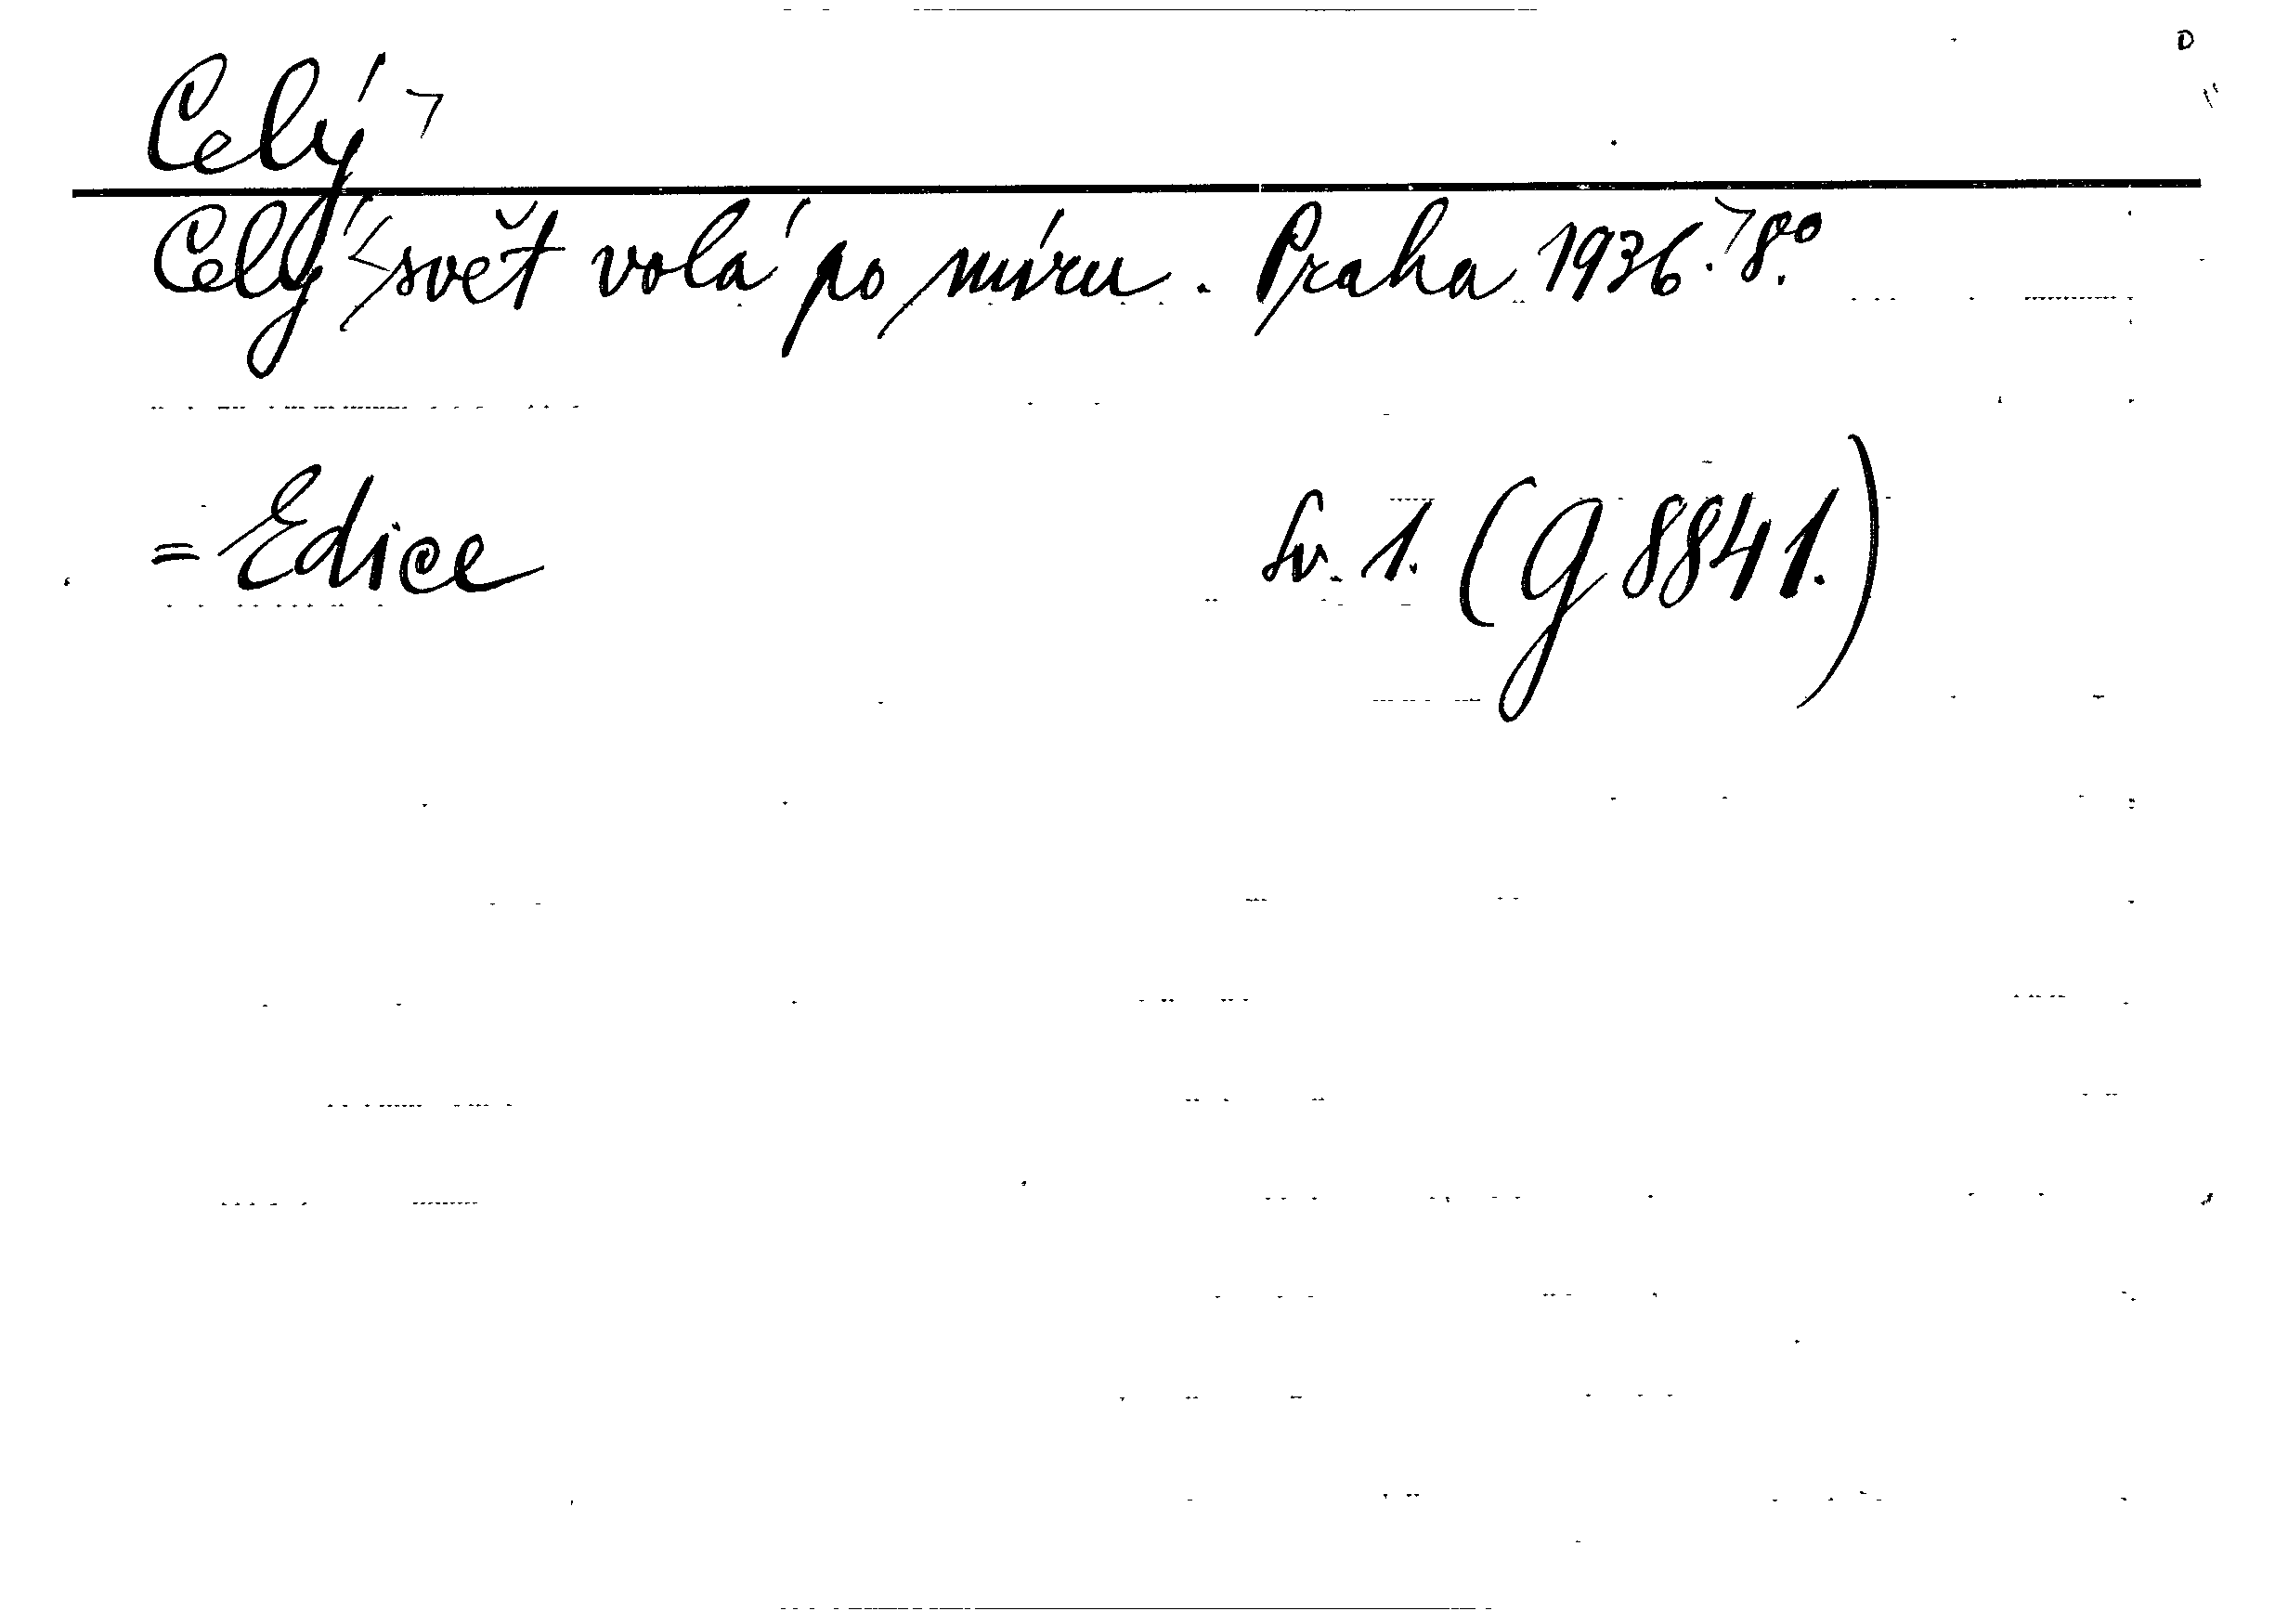 Celý
Celý svět volá po míru. Praha 1936. 8.°
= Edice Sv. 1. (G 8841.)